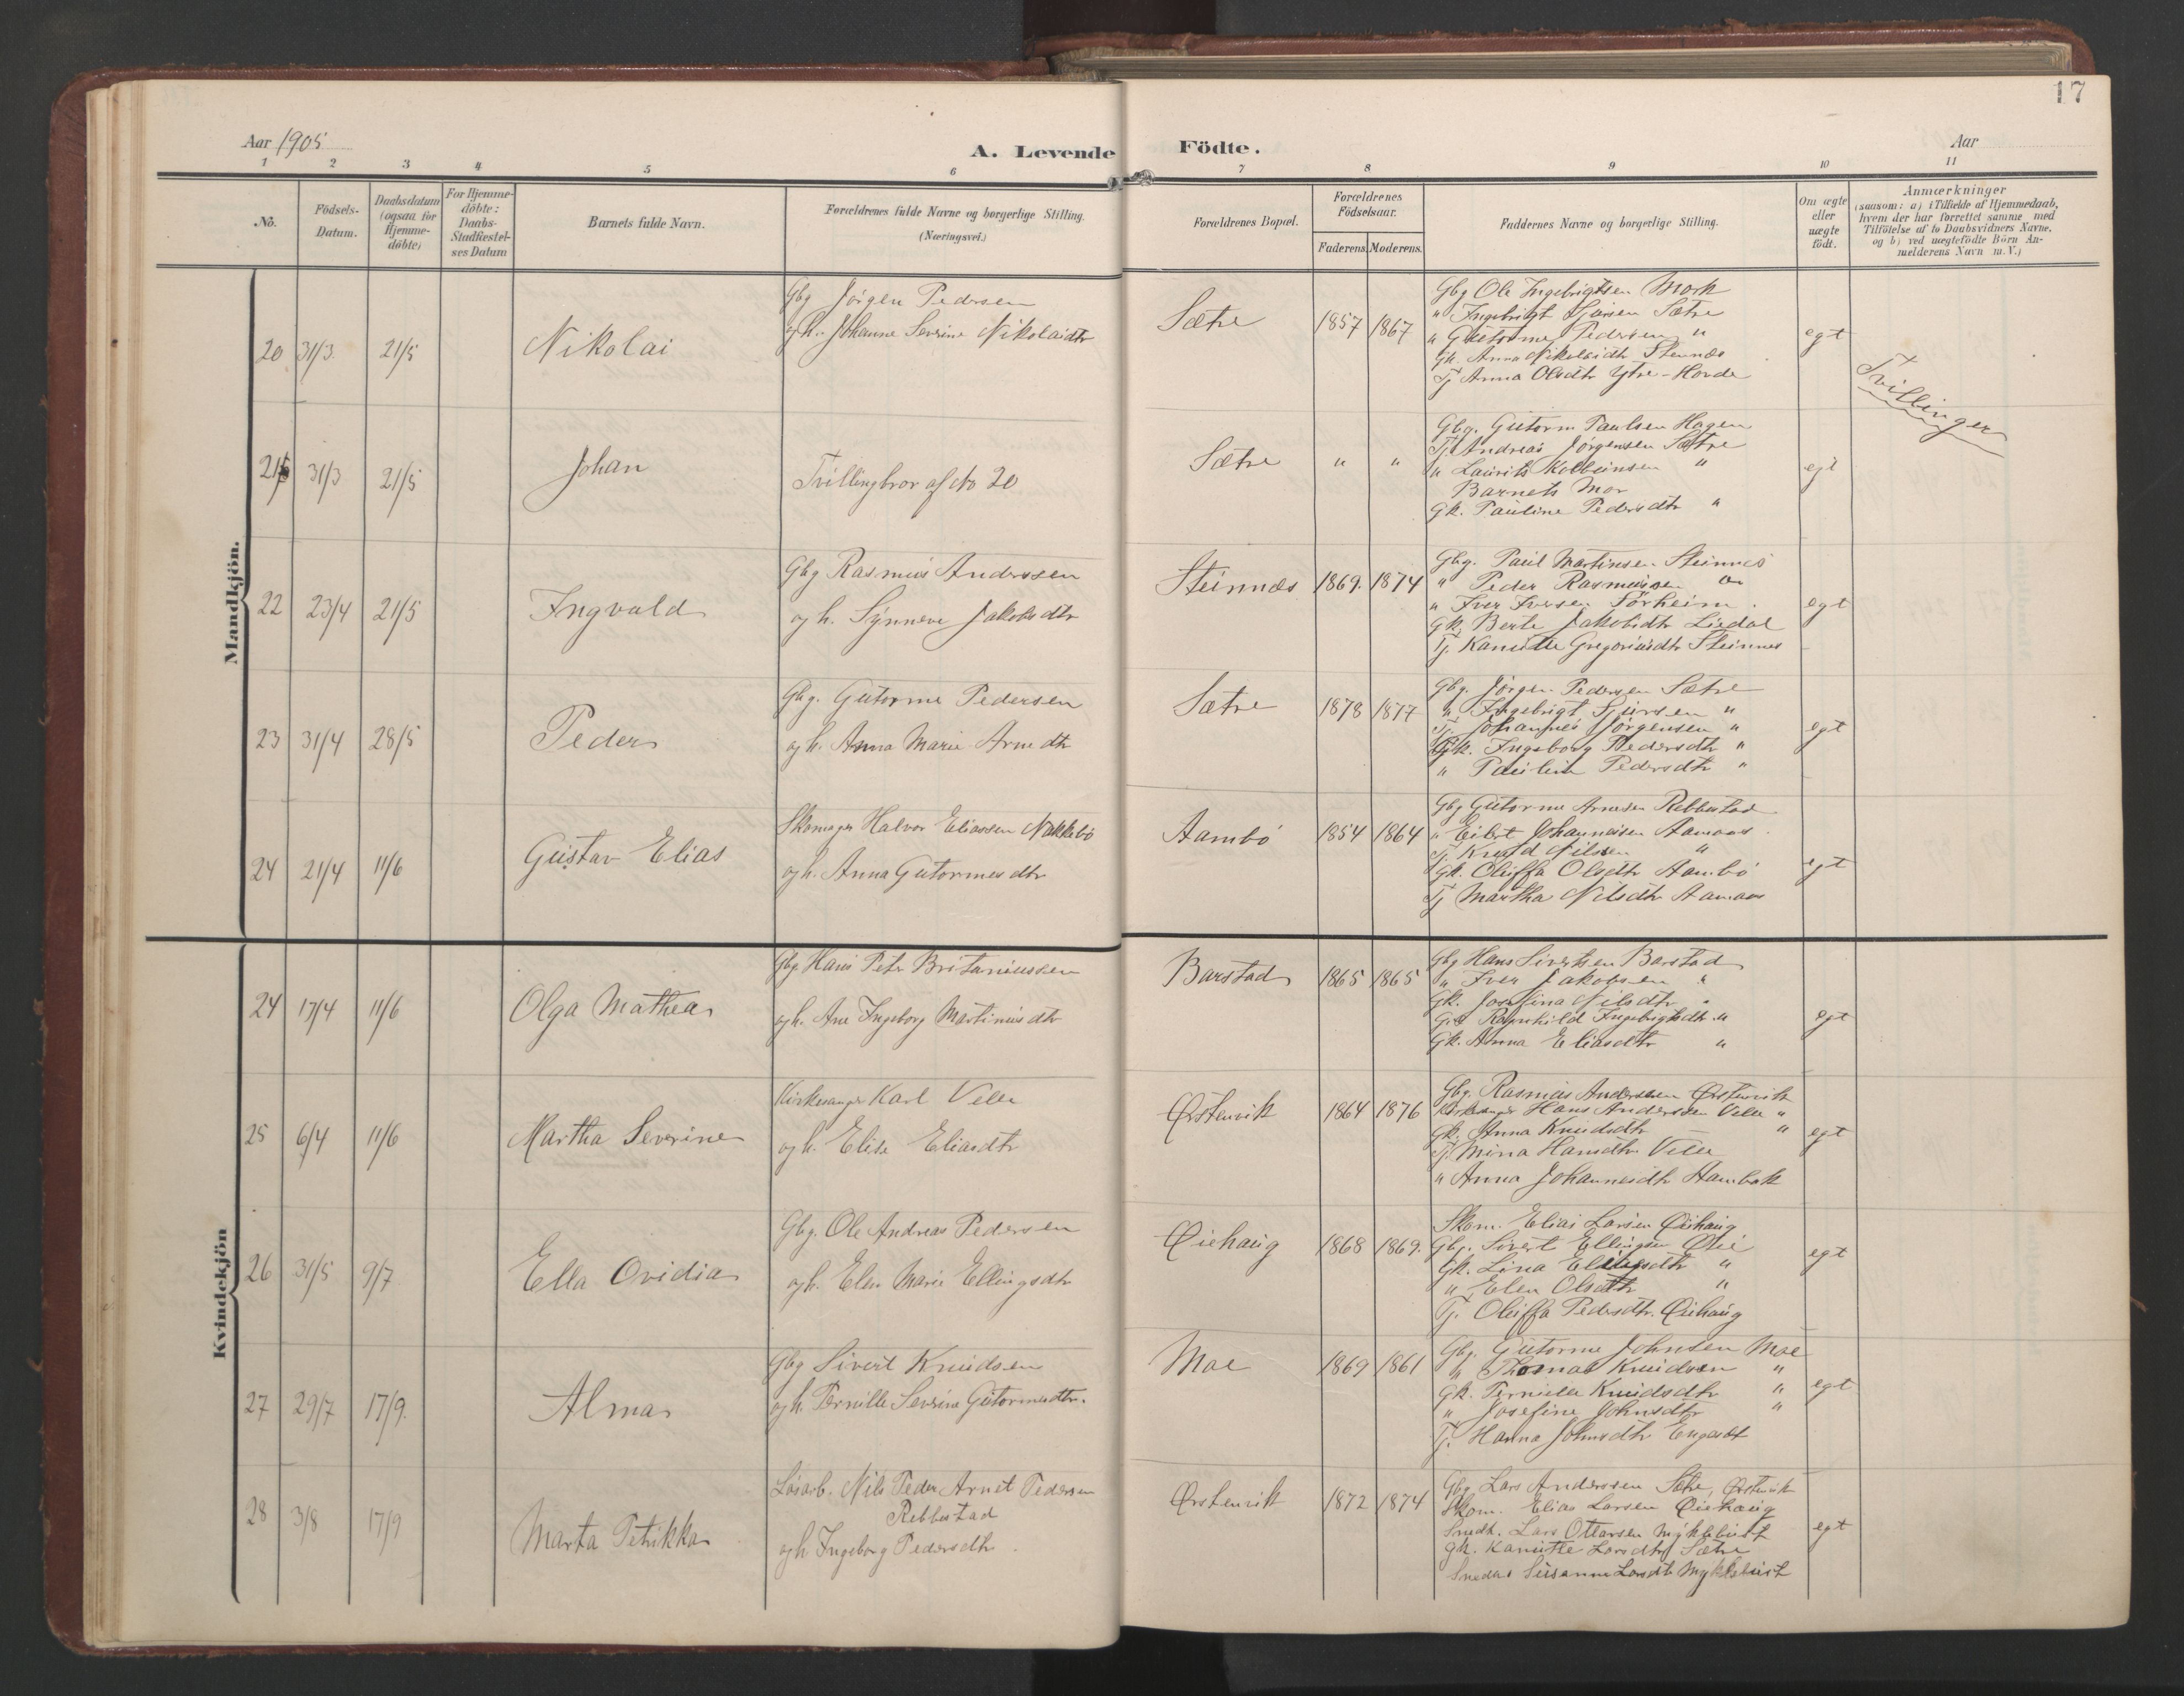 17
Aar 1905
A. Levende Födte.
Aar
1 2 3 4 5 6 7 8 9 10 11
No.
Födsels-Datum.
Daabsdatum (ogsaa for Hjemme-döbte)
For Hjemme-döbte: Daabs-Stadfæstel-ses Datum
Barnets fulde Navn.
Forældrenes fulde Navne og borgerlige Stilling. (Næringsvei.)
Forældrenes Bopæl.
Forældrenes Födselsaar.
Faderens. Moderens.
Faddernes Navne og borgerlige Stilling.
Om ægte eller uægte födt.
Anmærkninger
(saasom: a) i Tilfælde af Hjemmedaab,
hvem der har forrettet samme med
Tilföielse af to Daabsvidners Navne.
og b) ved uægtefödte Börn An-
melderens Navn m.V.)
Mandkjön.
20 31/3 21/5 Nikolai
Gbg Jörgen Pedersen
og h. Johanne Severine Nikolaidtr
Sætre 1857 1867
Gbg Ole Ingebrigtsen Mork
" Ingebrigt Sjursen Sætre
" Guttorme Pedersen "
Gk. Anna Nikolaidtr Steinnæs
Tj Anna Olsdtr Ytre-Hovde
egt
Tvillinger
21 31/3 21/5 Johan
Tvillingbror af No 20
Sætre " "
Gbg. Gutorm Paulsen Hagen
Tj. Andreas Jørgensen Sætre
" Laurits Kolbeinsen "
Barnets Mor
Gk. Pauline Pedersdtr "
egt
22 23/4 21/5 Ingvald
Gbg Rasmus Anderssen
og h. Synneve Jakobsdtr
Steinnæs 1869. 1874
Gbg. Paul Martinsen Steinnes
" Peder Rasmussen "
" Iver Iversen Sörheim
Gk. Berte Jakobsdtr Liadal
Tj. Kanutte Gregoriusdtr Steinnes
egt
23 31/4 28/5 Peder
Gbg. Gutorme Pedersen
og h. Anna Marie Arnedtr
Sætre 1878 1877
Gbg. Jörgen Pedersen Sætre
" Ingebrigt Sjursen "
Tj. Johannes Jörgensen "
Gk. Ingeborg Pedersdtr "
" Pauline Pedersdtr "
egt
24 21/4 11/6 Gustav Elias
Skomager Halvor Eliassen Nakkebö
og h. Anna Gutormesdtr
Aambö 1854 1864
Gbg Gutorme Arnesen Rebbestad
" Eilert Johannesen Aamaas
Tj. Knud Nilsen "
Gk. Oluffa Olsdtr Aambö
Tj Martha Nilsdtr Aamaas
egt
Kvindekjön
24 17/4 11/6 Olga Mathea
Gbg. Hans Peter Britaniussen
og h. Ane Ingeborg Martinusdtr
Barstad 1865 1865
Gbg Hans Sivertsen Barstad
" Iver Jakobsen "
Gk. Josefina Nilsdtr "
Ragnhild Ingebrigtsdtr "
Gk. Anna Eliasdtr "
egt
25 6/4 11/6 Martha Severine
Kirkesanger Karl Velle
og h. Elise Eliasdtr
Ørstenvik 1864 1876
Gbg. Rasmus Anderssen Ørstenvik
Kirkesanger Hans Anderssen Velle "
Gk. Anna Knudsdtr "
Tj. Mina Hansdtr Velle
" Anna Johannesdtr Hambak
egt
26 31/5 9/7 Ella Ovidia
Gbg. Ole Andreas Pedersen
og h. Elen Marie Ellingsdtr
Øiehaug 1868 1869.
Skom. Elias Larsen Øiehaug
Gbg. Sivert Ellingsen Øie
Gk. Lina Ellingsdtr "
" Elen Olsdtr "
Tj. Oluffa Pedersdtr. Øiehaug
egt
27 29/7 17/9. Alma
Gbg Sivert Knudsen
og h. Pernille Severine Gutormesdtr.
Moe 1869 1861
Gbg. Gutorme Johnsen Moe
" Thomas Knudsen "
Gk. Pernille Knudsdtr "
" Josefine Johnsdtr "
Tj. Hanna Johnsdtr Engeset
egt
28 3/8 17/9 Marta Petrikka
Løsarb. Nils Peder Arnet Pedersen
Rebbestad
og h Ingeborg Pedersdtr
Ørstenvik 1872 1874
Gbg Lars Anderssen Sætre, Ørstenvik
Skom. Elias Larsen Øiehaug
Snedk. Lars Ottarsen Myklebust
Gk. Kanutte Larsdtr Sætre
Susanne Larsdtr Myklebust
egt